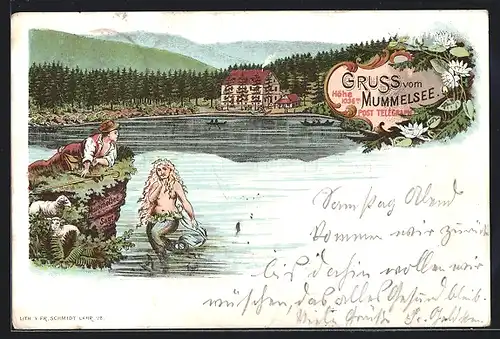 GRUSS vom
MUMMELSEE.
Höhe
1036 m
POST TELEGRAPH
Samstag Abend
kommen wir zurück
bis dahin wollen wir
wünschen, das alles Gesund bleibt.
Viele
LITH. v. FR. SCHMIDT LAHR, 1/B.